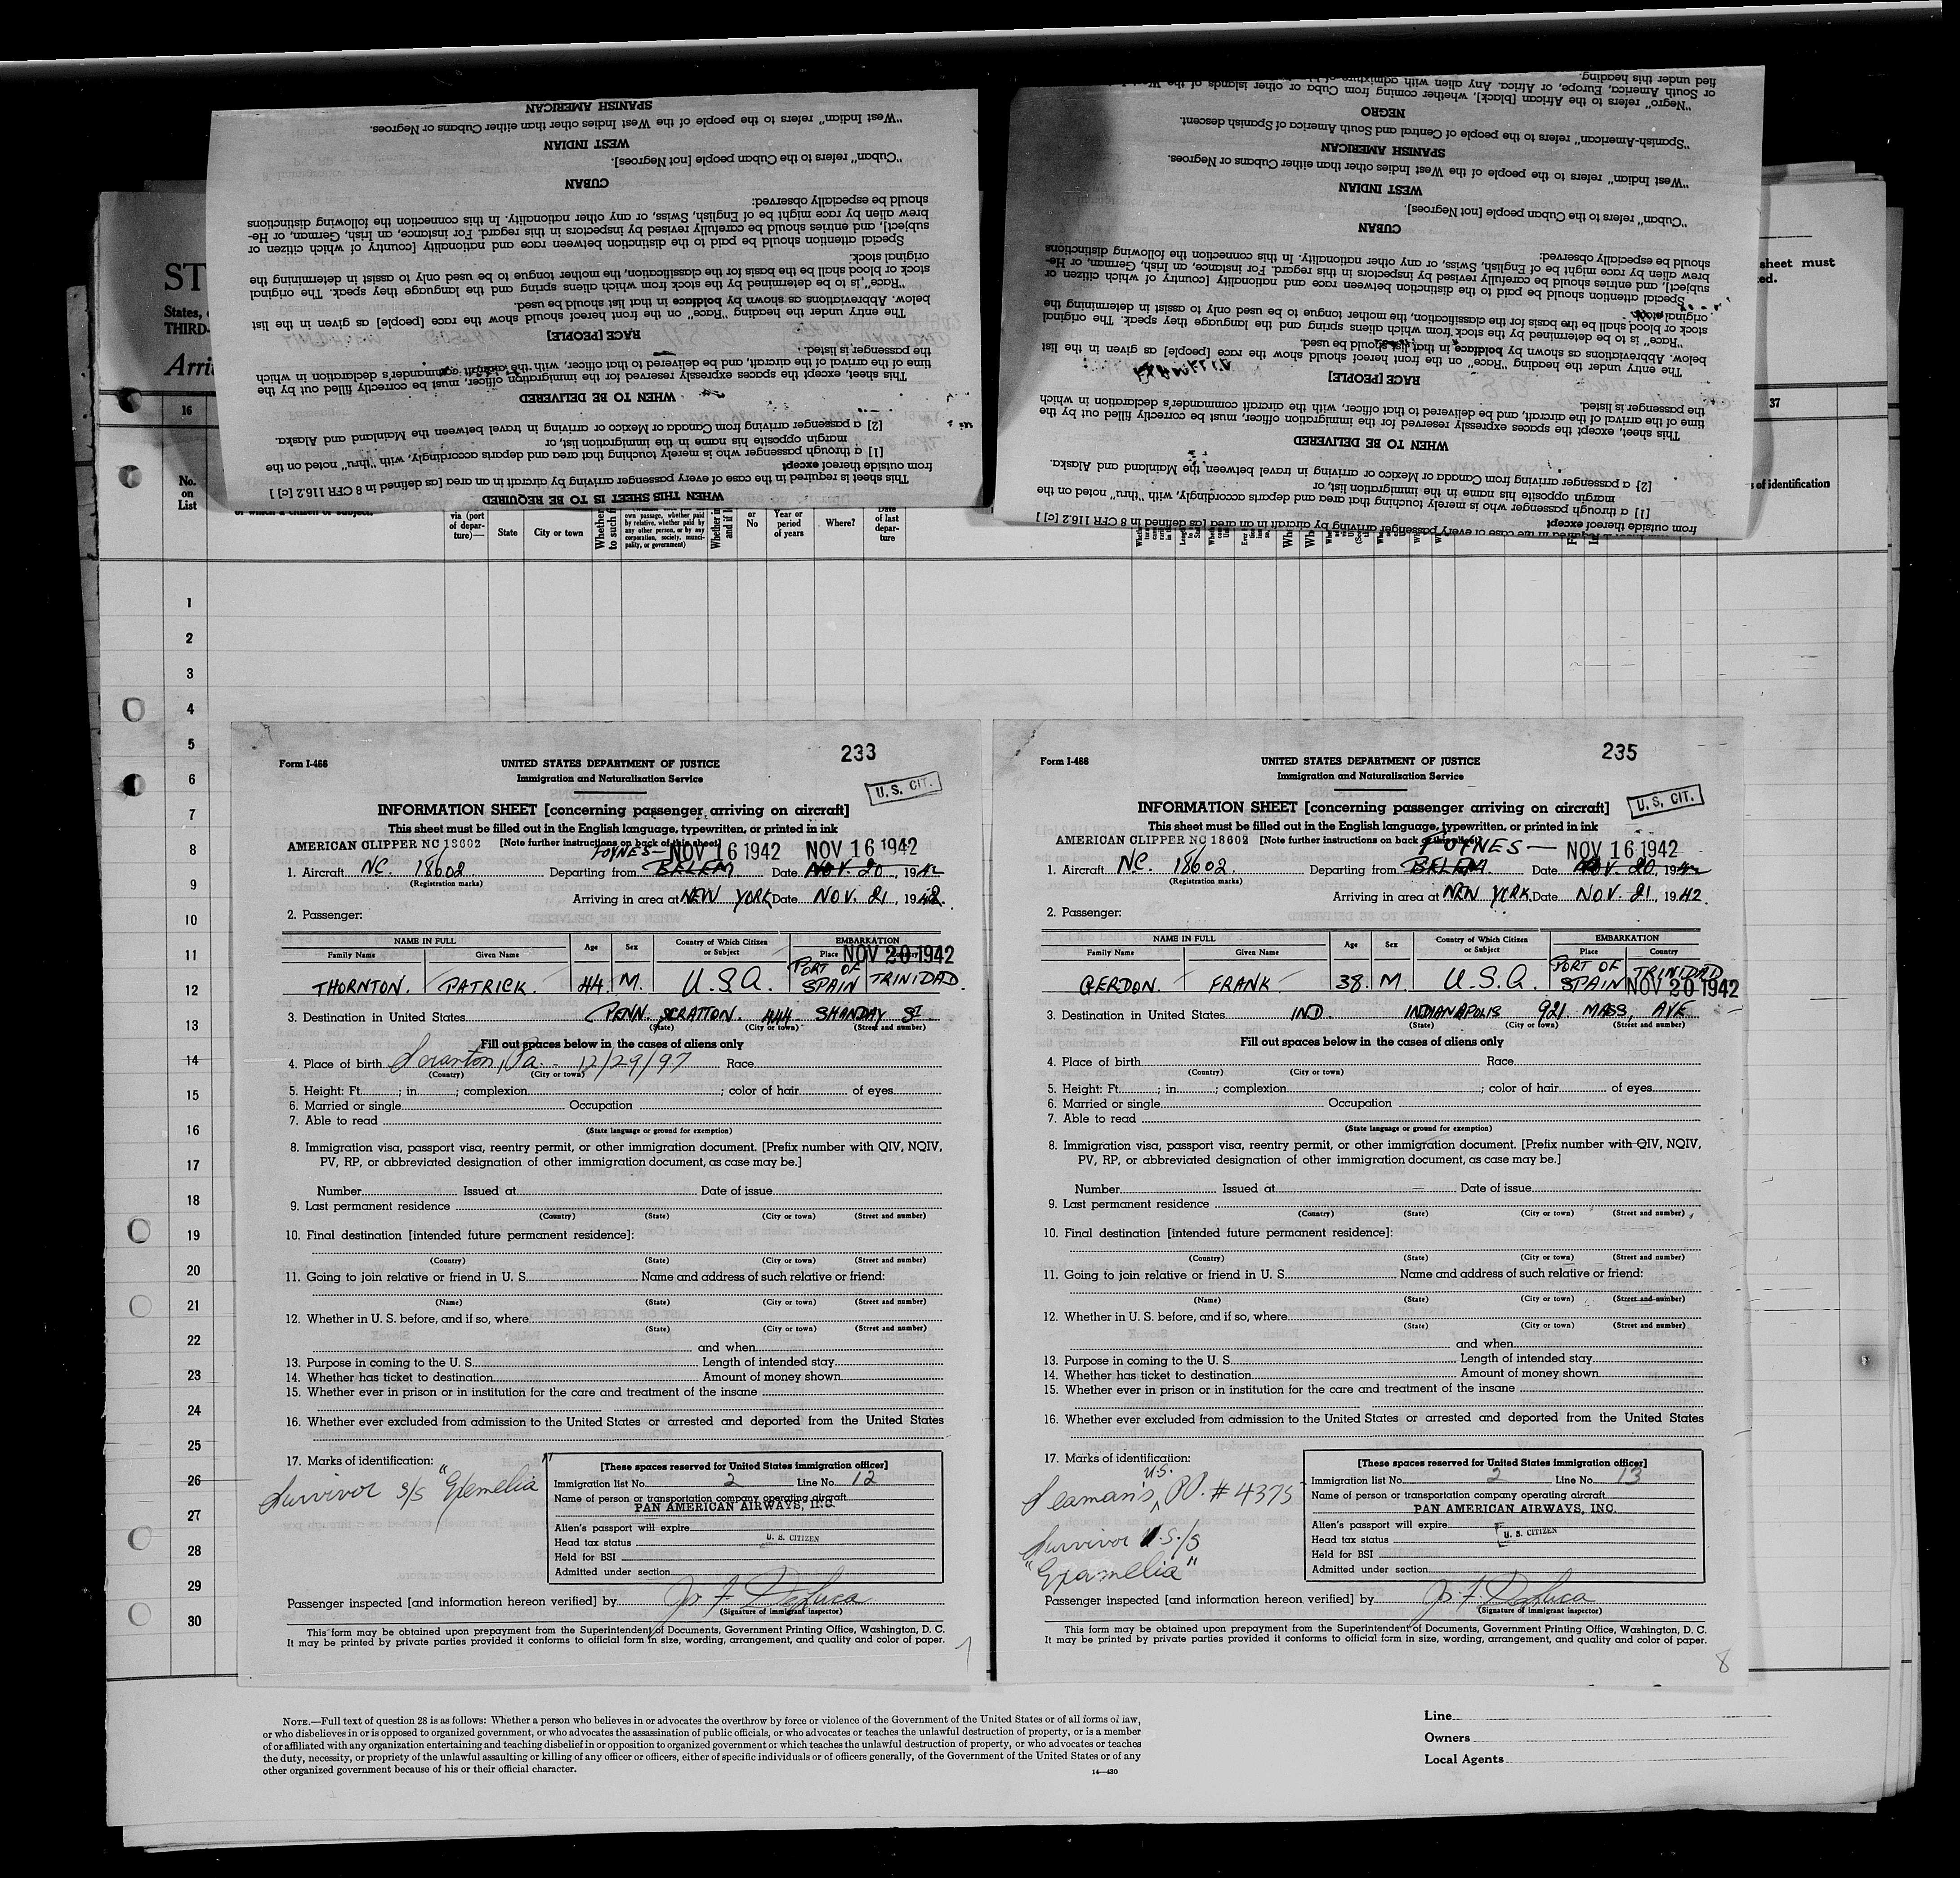 SPANISH AMERICAN
"West Indian" refers to the people of the West Indies other than either Cubans or Negroes.
WEST INDIAN
"Cuban" refers to the Cuban people [not Negroes].
CUBAN
should be especially observed:
brew alien by race might be of English, Swiss, or any other nationality. In this connection the following distinctions
subject], and entries should be carefully revised by inspectors in this regard. For instance, an Irish, German, or He-
Special attention should be paid to the distinction between race and nationality [country of which citizen or
original stock.
stock or blood shall be the basis for the classification, the mother tongue to be used only to assist in determining the
"Race" is to be determined by the stock from which aliens spring and the language they speak. The original
below. Abbreviations as shown by boldface in that list should be used.
The entry under the heading "Race" on the front hereof should show the race [people] as given in the list
RACE [PEOPLE]
the passenger is listed.
time of the arrival of the aircraft, and be delivered to that officer, with the aircraft commander's declaration in which
This sheet, except the spaces expressly reserved for the immigration officer, must be correctly filled out by the
WHEN TO BE DELIVERED
[2] a passenger arriving from Canada or Mexico or arriving in travel between the Mainland and Alaska.
margin opposite his name in the immigration list, or
[1] a through passenger who is merely touching that area and departs accordingly, with "thru" noted on the
from outside thereof except
This sheet is required in the case of every passenger arriving by aircraft in an area [as defined in 8 CFR 116.2 [c] ]
WHEN THIS SHEET IS TO BE REQUIRED
fied under this heading.
or South America, Europe, or Africa. Any alien with admixture of
"Negro" refers to the African [black], whether coming from Cuba or other islands of the
NEGRO
"Spanish-American" refers to the people of Central and South America of Spanish descent.
SPANISH AMERICAN
"West Indian" refers to the people of the West Indies other than either Cubans or Negroes.
WEST INDIAN
"Cuban" refers to the Cuban people [not Negroes].
CUBAN
should be especially observed:
brew alien by race might be of English, Swiss, or any other nationality. In this connection the following distinctions
subject], and entries should be carefully revised by inspectors in this regard. For instance, an Irish, German, or He-
Special attention should be paid to the distinction between race and nationality [country of which citizen or
original stock.
stock or blood shall be the basis for the classification, the mother tongue to be used only to assist in determining the
"Race" is to be determined by the stock from which aliens spring and the language they speak. The original
below. Abbreviations as shown by boldface in that list should be used.
The entry under the heading "Race" on the front hereof should show the race [people] as given in the list
RACE [PEOPLE]
the passenger is listed.
time of the arrival of the aircraft, and be delivered to that officer, with the aircraft commander's declaration in which
This sheet, except the spaces expressly reserved for the immigration officer, must be correctly filled out by the
WHEN TO BE DELIVERED
[2] a passenger arriving from Canada or Mexico or arriving in travel between the Mainland and Alaska.
margin opposite his name in the immigration list, or
[1] a through passenger who is merely touching that area and departs accordingly, with "thru" noted on the
from outside thereof except
required in the case of every passenger arriving by aircraft in an area [as defined in 8 CFR 116.2 [c] ]
ST
States,
THIRD-
Arri
sheet must
ed.
16
37
No. on List
via (port of depar-ture)—
State
City or town
Whether
to such
own passage, whether paid by relative, whether paid by any other person, or by any corporation, society, munci-pality, or government)
or No
Year or period of years
Where?
Date of last depar-ture
s of identification
1
2
3
4
5
6
7
8
9
10
11
12
13
14
15
16
17
18
19
20
21
22
23
24
25
26
27
28
29
30
233
Form I-466
UNITED STATES DEPARTMENT OF JUSTICE
Immigration and Naturalization Service
U. S. CIT.
INFORMATION SHEET [concerning passenger arriving on aircraft]
This sheet must be filled out in the English language, typewritten, or printed in ink
AMERICAN CLIPPER NC 18602 [Note further instructions on back of this sheet]
FOYNES— NOV 16 1942 NOV 16 1942
1. Aircraft NC. 18602. Departing from BELEM Date NOV. 20, 1942
(Registration marks)
Arriving in area at NEW YORK Date NOV. 21, 1942.
2. Passenger:
NAME IN FULL Age Sex Country of Which Citizen or Subject EMBARKATION
Family Name Given Name Place Country
NOV 20 1942
THORNTON. PATRICK. 44. M. U.S.A. PORT OF SPAIN TRINIDAD.
3. Destination in United States PENN. SCRATTON. 444 SHANDAY ST
(State) (City or town) (Street and number)
Fill out spaces below in the cases of aliens only
4. Place of birth Scranton, Pa. - 12/29/97 Race
(Country) (City or town)
5. Height: Ft. ; in. ; complexion ; color of hair of eyes
6. Married or single Occupation
7. Able to read
(State language or ground for exemption)
8. Immigration visa, passport visa, reentry permit, or other immigration document. [Prefix number with QIV, NQIV,
PV, RP, or abbreviated designation of other immigration document, as case may be.]
Number Issued at Date of issue
9. Last permanent residence
(Country) (State) (City or town) (Street and number)
10. Final destination [intended future permanent residence]:
(Country) (State) (City or town) (Street and number)
11. Going to join relative or friend in U. S. Name and address of such relative or friend:
(Name) (State) (City or town) (Street and number)
12. Whether in U. S. before, and if so, where
(State) (City or town) (Street and number)
and when
13. Purpose in coming to the U. S. Length of intended stay
14. Whether has ticket to destination Amount of money shown
15. Whether ever in prison or in institution for the care and treatment of the insane
16. Whether ever excluded from admission to the United States or arrested and deported from the United States
17. Marks of identification:
Survivor S/S "Examelia"
[These spaces reserved for United States immigration officer]
Immigration list No. 2 Line No. 12
Name of person or transportation company operating aircraft
PAN AMERICAN AIRWAYS, INC.
Alien's passport will expire
Head tax status U. S. CITIZEN
Held for BSI
Admitted under section
Passenger inspected [and information hereon verified] by Jos. F. DeLuca
(Signature of immigrant inspector)
This form may be obtained upon prepayment from the Superintendent of Documents, Government Printing Office, Washington, D. C.
It may be printed by private parties provided it conforms to official form in size, wording, arrangement, and quality and color of paper.
7
235
Form I-466
UNITED STATES DEPARTMENT OF JUSTICE
Immigration and Naturalization Service
U. S. CIT.
INFORMATION SHEET [concerning passenger arriving on aircraft]
This sheet must be filled out in the English language, typewritten, or printed in ink
AMERICAN CLIPPER NC 18602 [Note further instructions on back of this sheet]
FOYNES— NOV 16 1942
1. Aircraft NC. 18602. Departing from BELEM. Date NOV. 20, 1942
(Registration marks)
Arriving in area at NEW YORK. Date NOV. 21, 1942.
2. Passenger:
NAME IN FULL Age Sex Country of Which Citizen or Subject EMBARKATION
Family Name Given Name Place Country
GERDON. FRANK 38. M. U.S.A. PORT OF SPAIN TRINIDAD
NOV 20 1942
3. Destination in United States IND. INDIANAPOLIS 921 MASS, AVE
(State) (City or town) (Street and number)
Fill out spaces below in the cases of aliens only
4. Place of birth Race
(Country) (City or town)
5. Height: Ft. ; in. ; complexion ; color of hair of eyes
6. Married or single Occupation
7. Able to read
(State language or ground for exemption)
8. Immigration visa, passport visa, reentry permit, or other immigration document. [Prefix number with QIV, NQIV,
PV, RP, or abbreviated designation of other immigration document, as case may be.]
Number Issued at Date of issue
9. Last permanent residence
(Country) (State) (City or town) (Street and number)
10. Final destination [intended future permanent residence]:
(Country) (State) (City or town) (Street and number)
11. Going to join relative or friend in U. S. Name and address of such relative or friend:
(Name) (State) (City or town) (Street and number)
12. Whether in U. S. before, and if so, where
(State) (City or town) (Street and number)
and when
13. Purpose in coming to the U. S. Length of intended stay
14. Whether has ticket to destination Amount of money shown
15. Whether ever in prison or in institution for the care and treatment of the insane
16. Whether ever excluded from admission to the United States or arrested and deported from the United States
17. Marks of identification:
U.S.
Seaman's PP. # 4375
Survivor U.S./S
"Examelia"
[These spaces reserved for United States immigration officer]
Immigration list No. 2 Line No. 13
Name of person or transportation company operating aircraft
PAN AMERICAN AIRWAYS, INC.
Alien's passport will expire
Head tax status U. S. CITIZEN
Held for BSI
Admitted under section
Passenger inspected [and information hereon verified] by Jos. F. DeLuca
(Signature of immigrant inspector)
This form may be obtained upon prepayment from the Superintendent of Documents, Government Printing Office, Washington, D. C.
It may be printed by private parties provided it conforms to official form in size, wording, arrangement, and quality and color of paper.
8
NOTE.—Full text of question 28 is as follows: Whether a person who believes in or advocates the overthrow by force or violence of the Government of the United States or of all forms of law,
or who disbelieves in or is opposed to organized government, or who advocates the assassination of public officials, or who advocates or teaches the unlawful destruction of property, or is a member
of or affiliated with any organization entertaining and teaching disbelief in or opposition to organized government or which teaches the unlawful destruction of property, or who advocates or teaches
the duty, necessity, or propriety of the unlawful assaulting or killing of any officer or officers, either of specific individuals or of officers generally, of the Government of the United States or of any
other organized government because of his or their official character.
14—430
Line
Owners
Local Agents